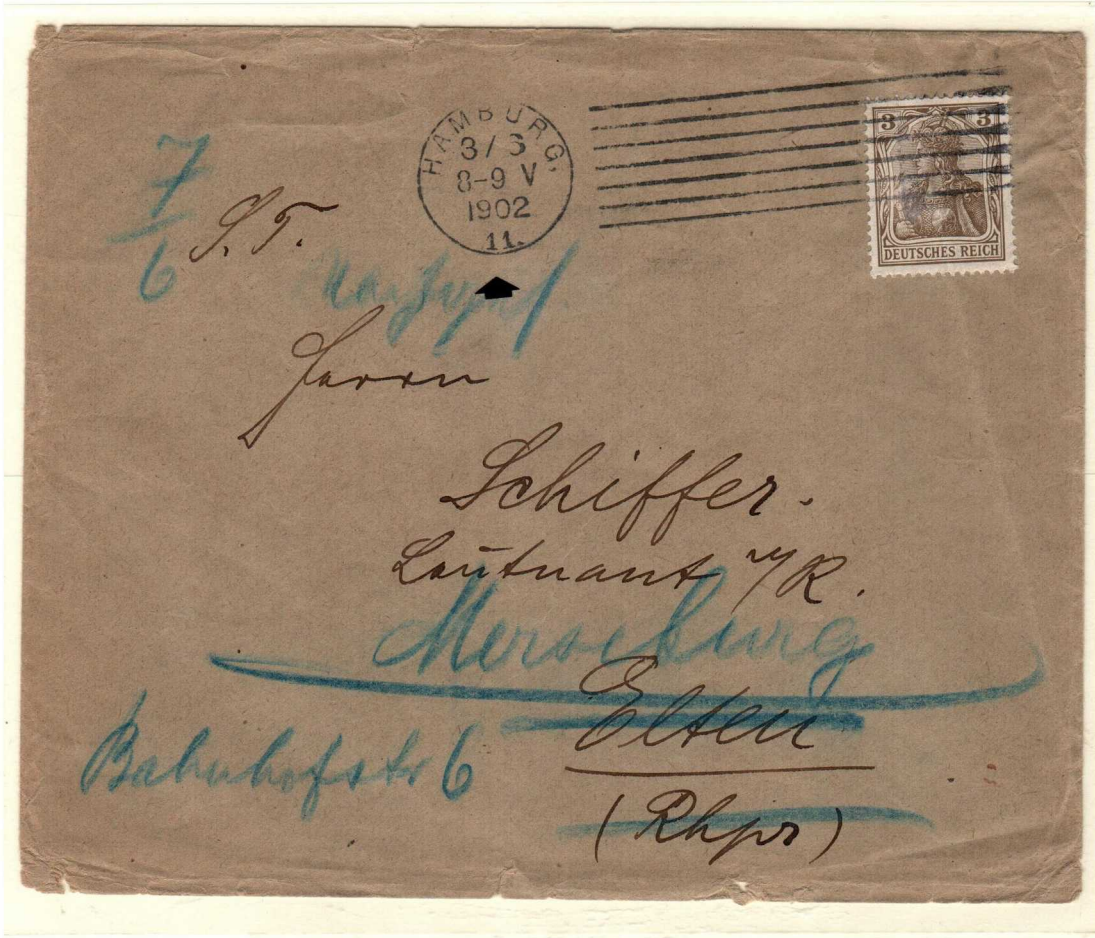 HAMBURG.
3/6
8-9 V
1902
11.
3 3
DEUTSCHES REICH
7/6
S. T.
Herrn
Schiffer.
Leutnant /R.
Merseburg
Elten
Bahnhofstr 6
(Rhpr)